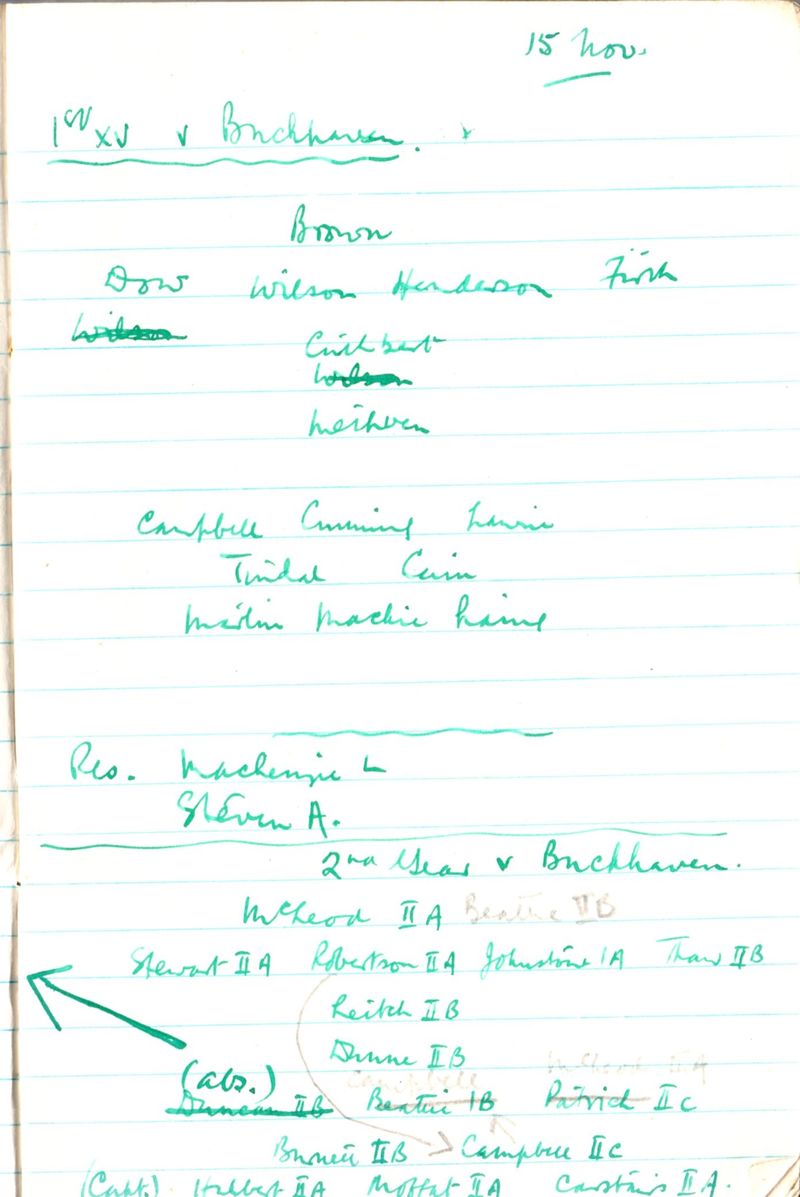 15 Nov.
1st XV v Buckhaven.
Brown
Dow Wilson Henderson Firth
Wilson
Cuthbert
Wilson
Methven
Campbell Cumming Lawrie
Tindal Cain
Martin Mackie Laing
Res. Mackenzie L
Steven A.
2nd Year v Buckhaven.
McLeod IIA Beattie IIB
Stewart IIA Robertson IIA Johnstone IA Thaw IIB
Leitch IIB
Dunne IIB
(abs.) Campbell McLeod IIA
Duncan IIB Beattie IB Patrick IIC
Burnett IIB Campbell IIC
(Capt.) Hubbert IIA Moffat IIA Carstairs IIA.